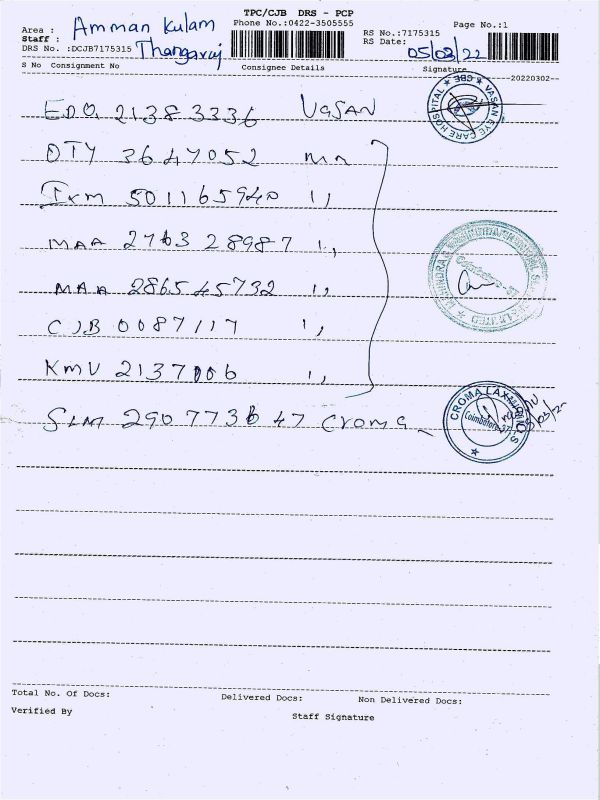 TPC/CJB DRS - PCP
Phone No.:0422-3505555
Page No.:1
Area : Amman Kulam
Staff : Thangaraj
DRS No. :DCJB7175315
RS No.:7175315
RS Date: 05/03/22
S No Consignment No Consignee Details Signature
20220302
EDQ 21383336 VASAN
OTY 3647052 mm
501165940 ,,
MAA 276328987 ,,
MAA 286545732 ,,
CJB 0087117 ,,
KMU 2137006 ,,
SLM 290773647 Croma
VASAN EYE CARE HOSPITAL CBE
CROMA LAXMI
Coimbatore
Total No. Of Docs: Delivered Docs: Non Delivered Docs:
Verified By Staff Signature